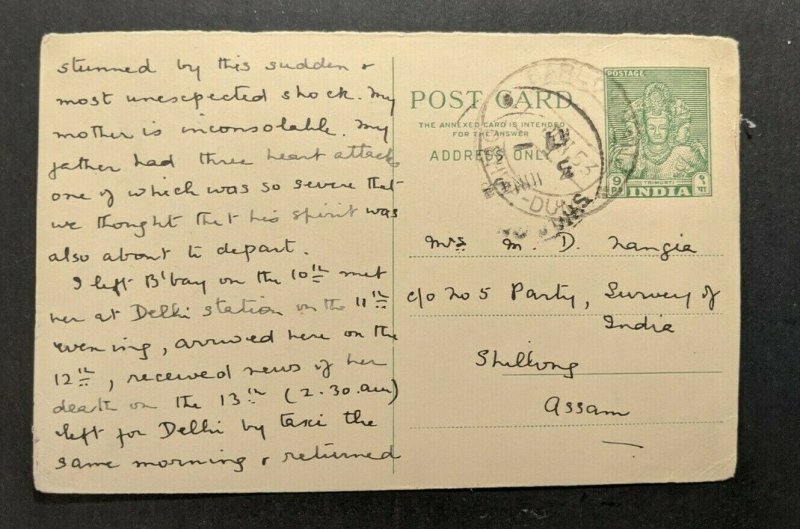 stunned by this sudden &
most unexpected shock. My
mother is inconsolable. My
father had three heart attacks
one of which was so severe that
we thought that his spirit was
also about to depart.
I left B'bay on the 10th met
her at Delhi station on the 11th
evening, arrived here on the
12th, received news of her
death on the 13th (2.30.am)
& left for Delhi by taxi the
same morning & returned
POST CARD
THE ANNEXED CARD IS INTENDED
FOR THE ANSWER
ADDRESS ONLY
POSTAGE
9 Ps
९ पा
TRIMURTI
INDIA
Mrs M. D. Nangia
c/o No 5 Party, Survey of
India
Shillong
Assam